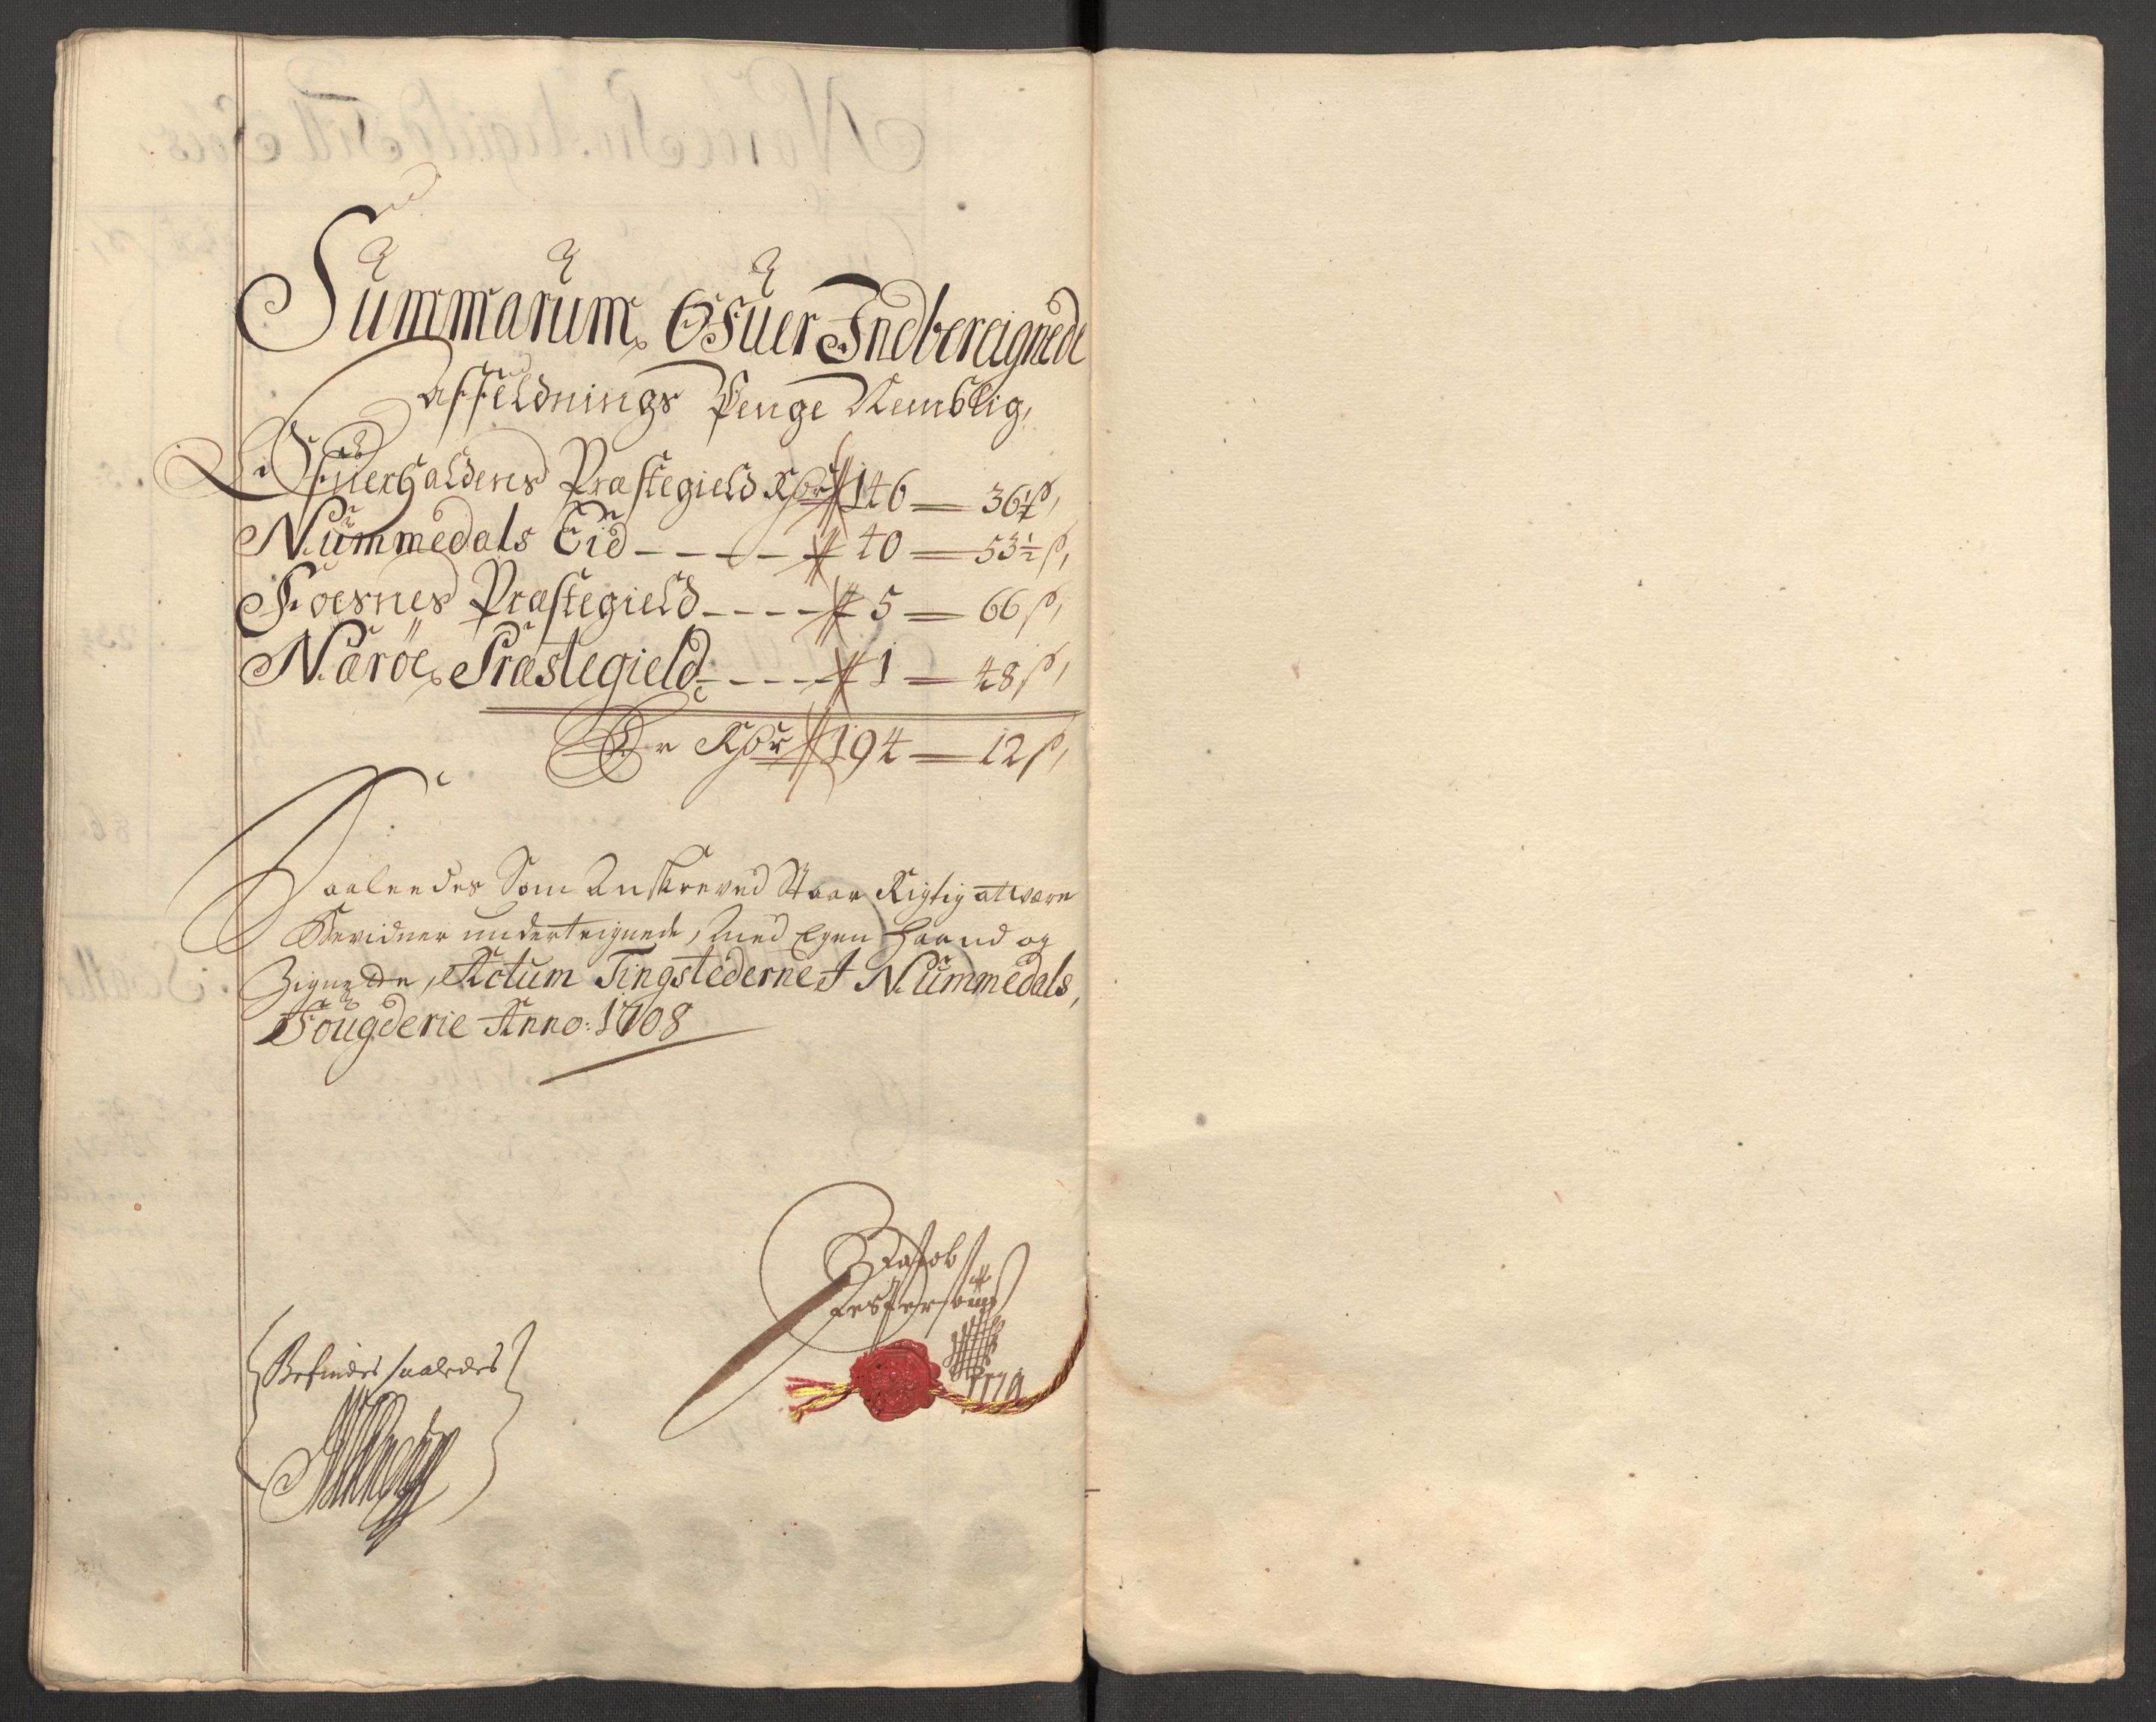 Summarum Ofuer Indbereignede
affeldnings Penge Nemblig,
Ofuerhaldens Præstegield Rdr 146 — 36¼ ß,
Nummedals Eid – – – – 40 — 53½ ß,
Foesnes Præstegield – – – – 5 — 66 ß,
Nærøe Præstegield – – – – 1 — 48 ß,
Er Rdr 194 — 12 ß,
Saaleedes Som Anskreved Staar Rigtig at være
Bevidner underteignede, Med Egen Haand og
Zignette, Actum Tingstederne I Nummedals,
Fougderie Anno: 1708
Jakob
Befindes saaledes